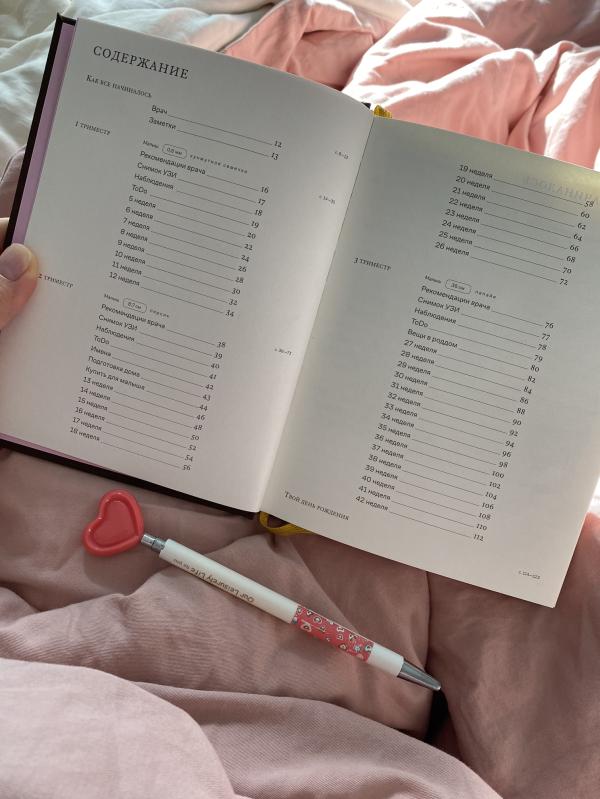 СОДЕРЖАНИЕ
Как все начиналось
с. 8–13
Врач 12
Заметки 13
1 триместр
с. 14–35
Малыш 0,8 мм кунжутное семечко
Рекомендации врача 16
Снимок УЗИ 17
Наблюдения 18
ToDo 19
5 неделя 20
6 неделя 22
7 неделя 24
8 неделя 26
9 неделя 28
10 неделя 30
11 неделя 32
12 неделя 34
2 триместр
с. 36–73
Малыш 8,7 см персик
Рекомендации врача 38
Снимок УЗИ 39
Наблюдения 40
ToDo 41
Имена 42
Подготовка дома 43
Купить для малыша 44
13 неделя 46
14 неделя 48
15 неделя 50
16 неделя 52
17 неделя 54
18 неделя 56
19 неделя 58
20 неделя 60
21 неделя 62
22 неделя 64
23 неделя 66
24 неделя 68
25 неделя 70
26 неделя 72
3 триместр
Малыш 38 см папайя
Рекомендации врача 76
Снимок УЗИ 77
Наблюдения 78
ToDo 79
Вещи в роддом 80
27 неделя 82
28 неделя 84
29 неделя 86
30 неделя 88
31 неделя 90
32 неделя 92
33 неделя 94
34 неделя 96
35 неделя 98
36 неделя 100
37 неделя 102
38 неделя 104
39 неделя 106
40 неделя 108
41 неделя 110
42 неделя 112
Твой день рождения
с. 114–123
Our Leisurely Life for you